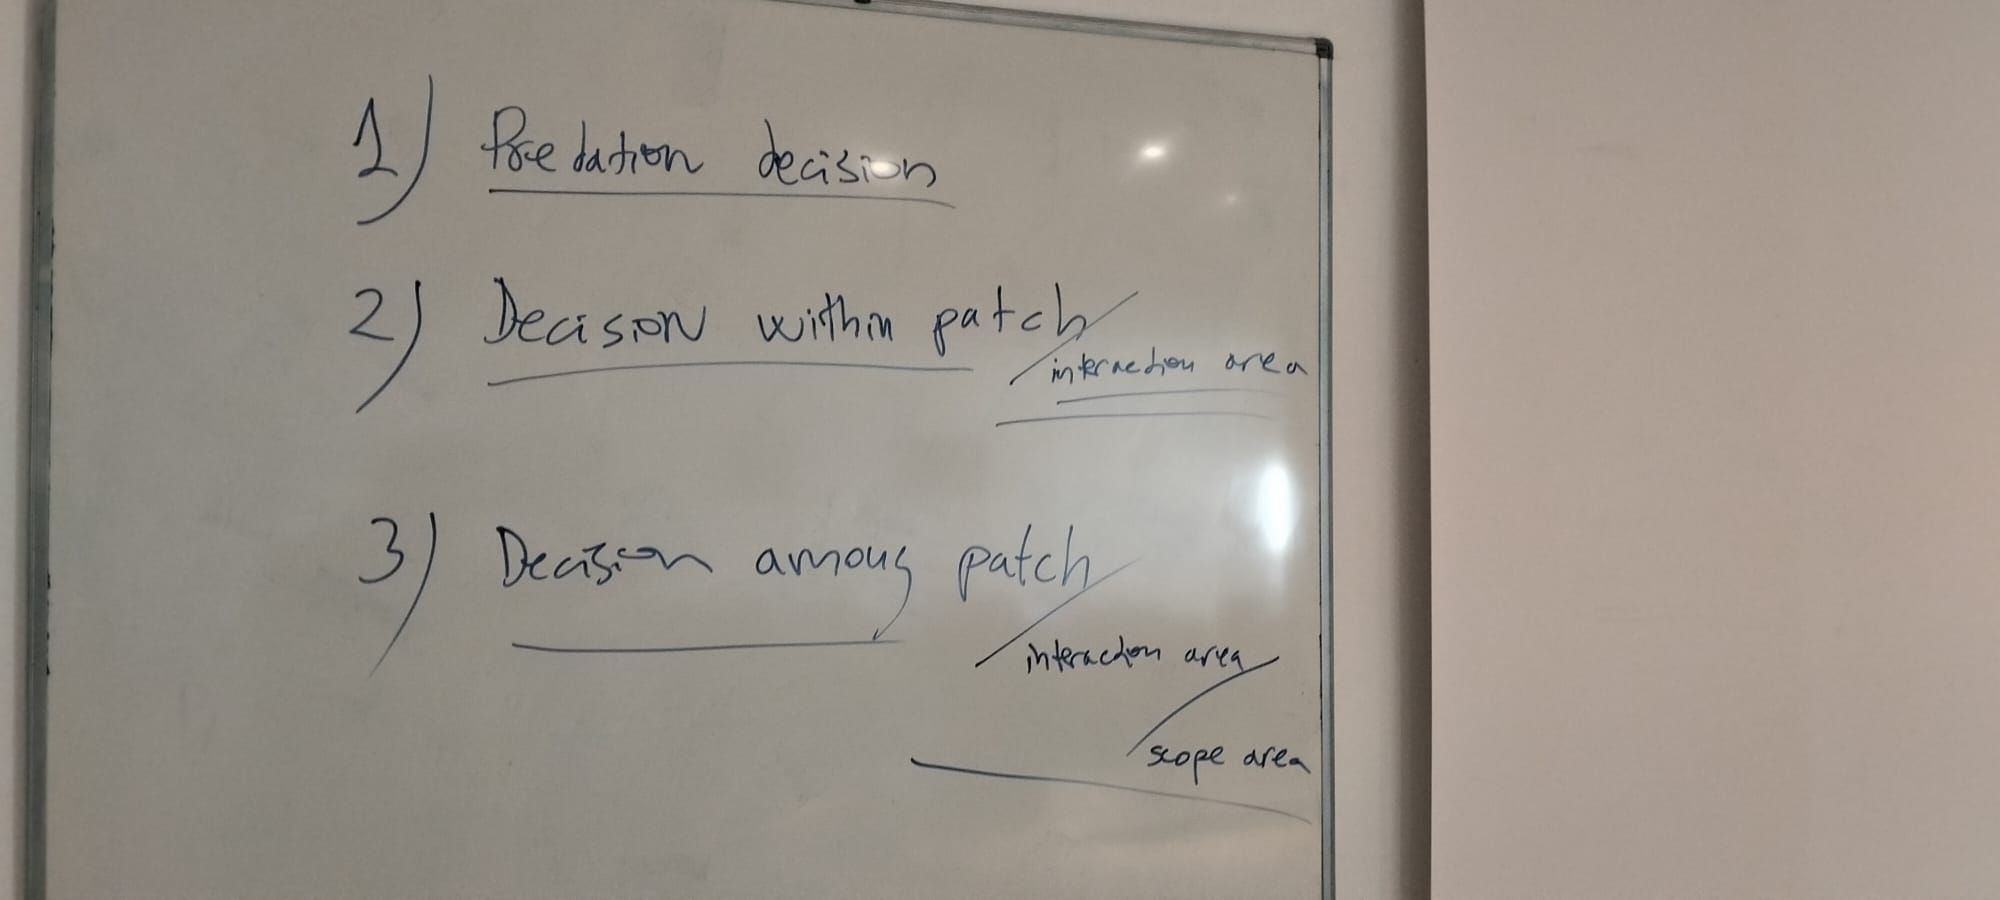 1) Predation decision
2) Decision within patch/
interaction area
3) Decision among patch/
interaction area/
scope area